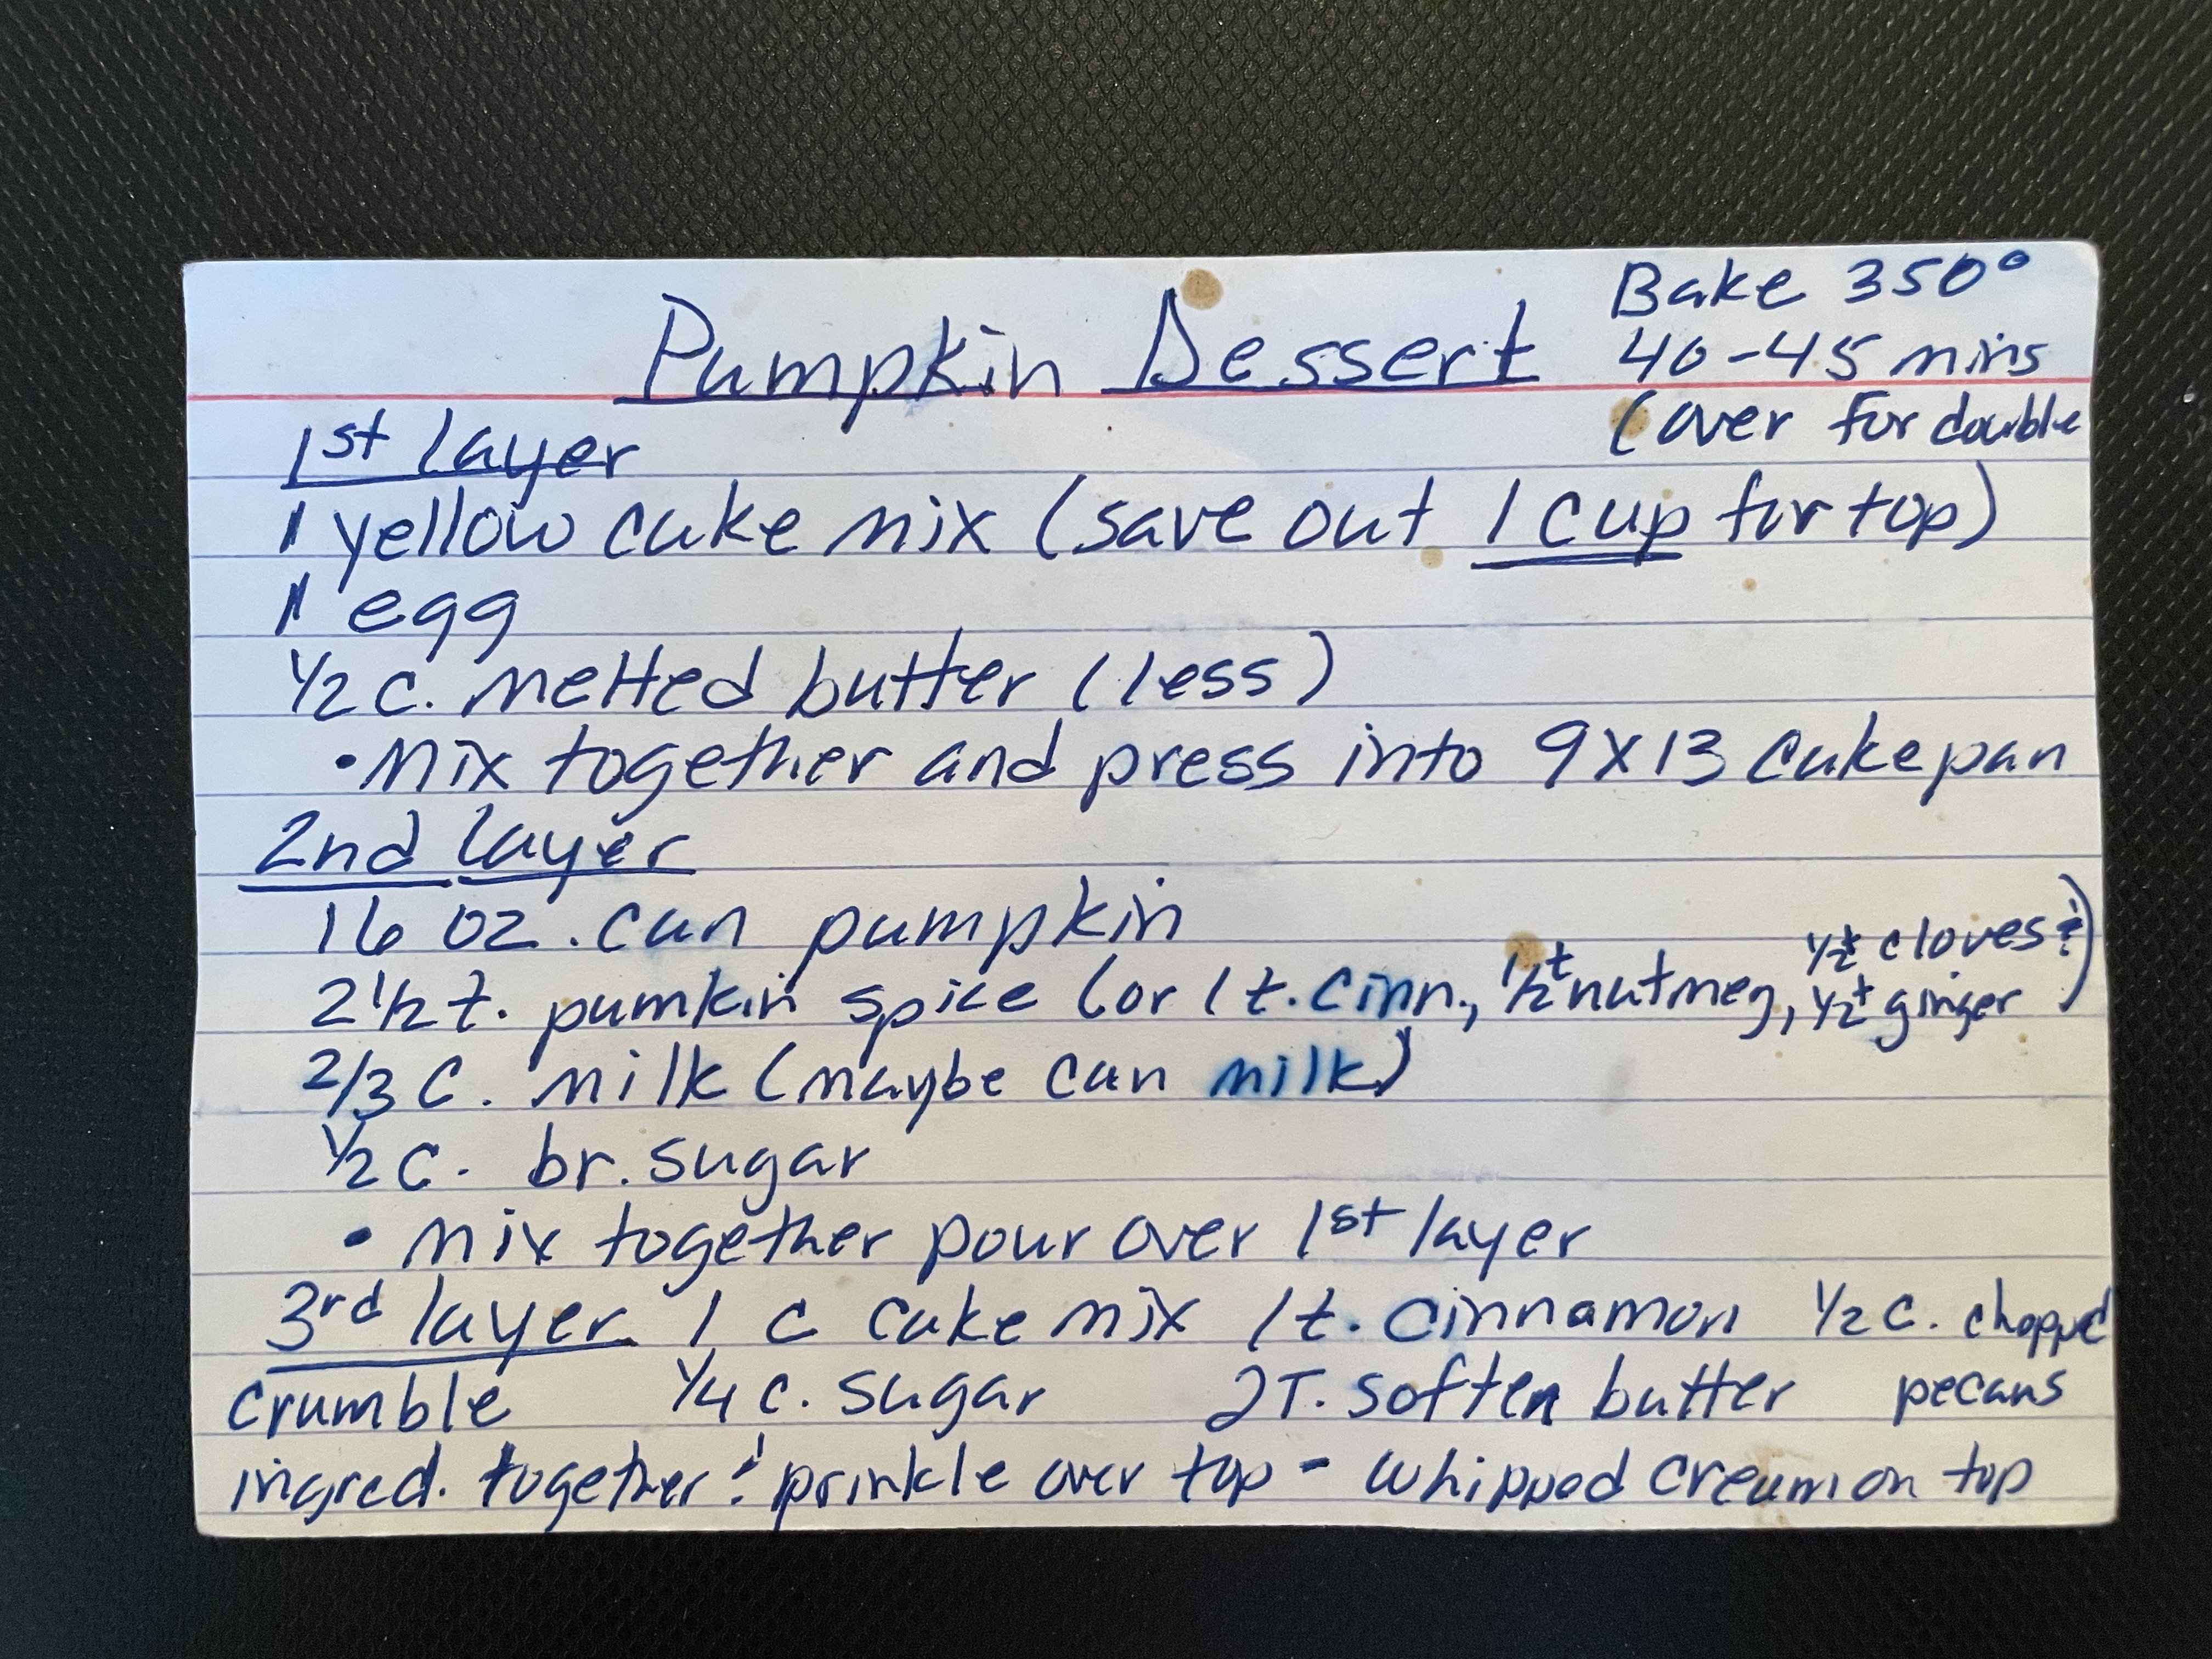 Pumpkin Dessert
Bake 350°
40-45 mins
(over for double
1st layer
1 yellow cake mix (save out 1 cup for top)
1 egg
1/2 c. melted butter (less)
• Mix together and press into 9X13 cake pan
2nd layer
16 oz. can pumpkin
2 1/2 t. pumkin spice (or 1 t. cinn., 1/2 t nutmeg, 1/2 t cloves & 1/2 t ginger)
2/3 C. milk (maybe can milk)
1/2 c. br. sugar
• mix together pour over 1st layer
3rd layer 1 c cake mix 1 t. cinnamon 1/2 c. chopped
crumble 1/4 c. sugar 2T. soften butter pecans
ingred. together & prinkle over top - whipped cream on top